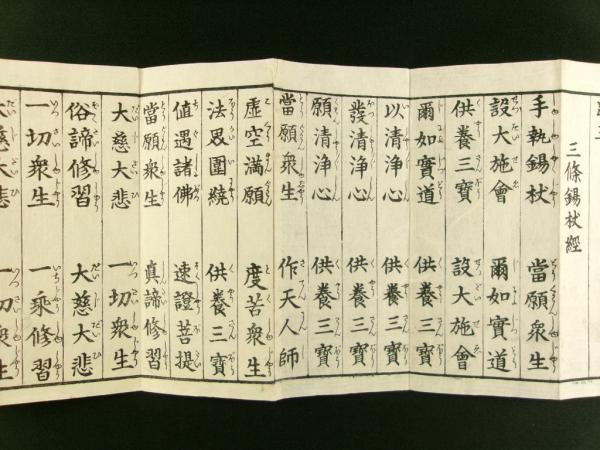 三條錫杖經
手執錫杖 當願衆生
設大施會 爾如實道
供養三寶 設大施會
爾如實道 供養三寶
以清淨心 供養三寶
發清淨心 供養三寶
願清淨心 供養三寶
當願衆生 作天人師
虛空滿願 度苦衆生
法界圍繞 供養三寶
值遇諸佛 速證菩提
當願衆生 真諦修習
大慈大悲 一切衆生
俗諦修習 大慈大悲
一切衆生 一乘修習
大慈大悲 一切衆生